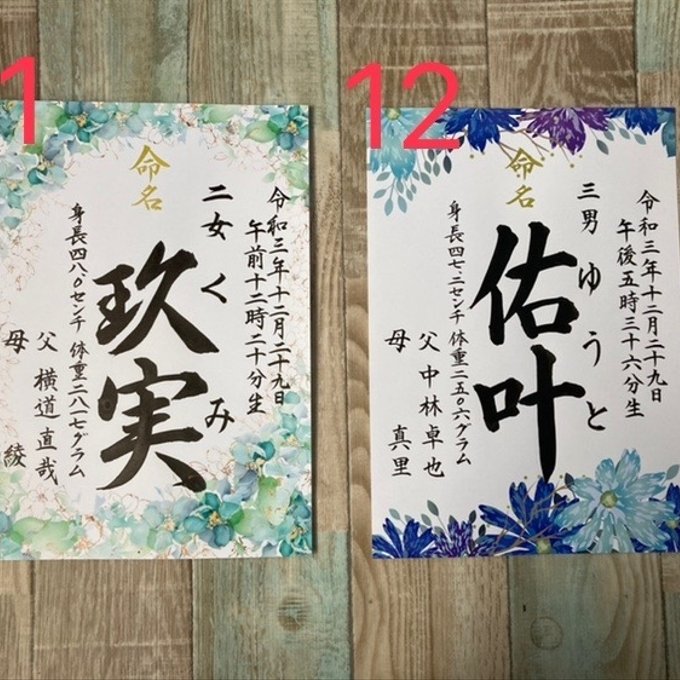 1
命名
令和三年十二月二十九日
午前十二時二十分生
二女
くみ
玖実
身長四八.〇センチ 体重二八一七グラム
父 横道直哉
母 綾
12
命名
令和三年十二月二十九日
午後五時三十六分生
三男
ゆうと
佑叶
身長四七.二センチ 体重二五〇六グラム
父 中林卓也
母 真里